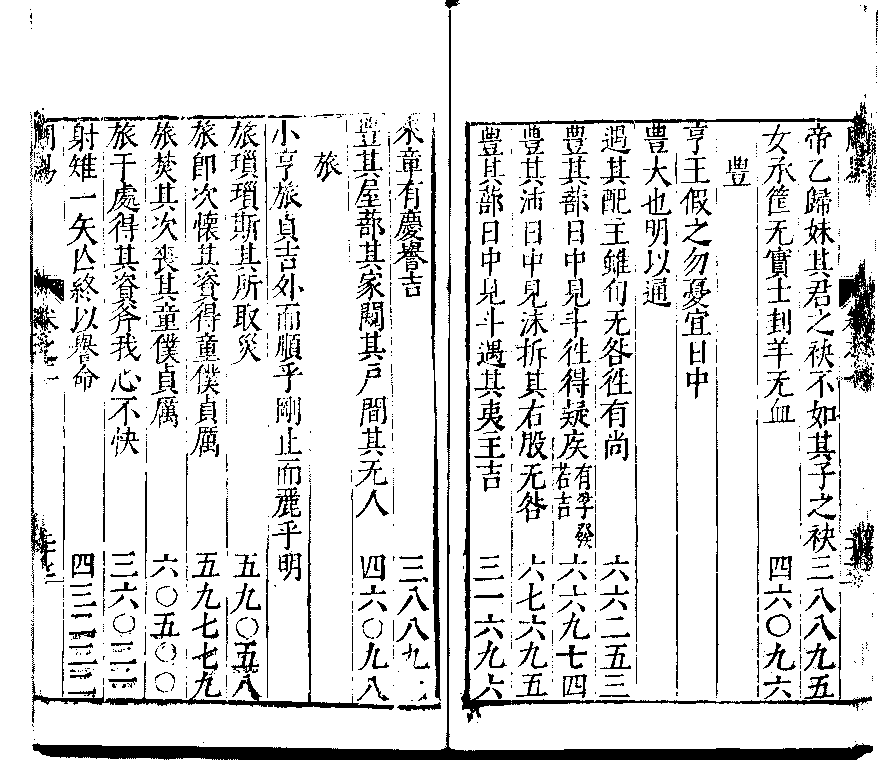 帝乙歸妹其君之袂不如其子之袂三八八九五
女承筐无實士刲羊无血四六〇九六
豐
亨王假之勿憂宜日中
豐大也明以通
遇其配王雖旬无咎徃有尚六六二五三
豐其蔀日中見斗徃得疑疾有孚發若吉六六九七四
豐其沛日中見沬折其右股无咎六七六九五
豐其蔀日中見斗遇其夷王吉三一六九六
來童有慶譽吉三八八九
豐其屋蔀其家闚其戸間其无人四六〇九八
旅
小亨旅貞吉外而順乎剛止而麗乎明
旅瑣瑣斯其所取災五九〇五八
旅卽次懷其資得童僕貞厲五九七七九
旅焚其次喪其童僕貞厲六〇五〇〇
旅于處得其資斧我心不快三六〇二二
射雉一矢亡終以譽命四三二三二
周易
卷之二